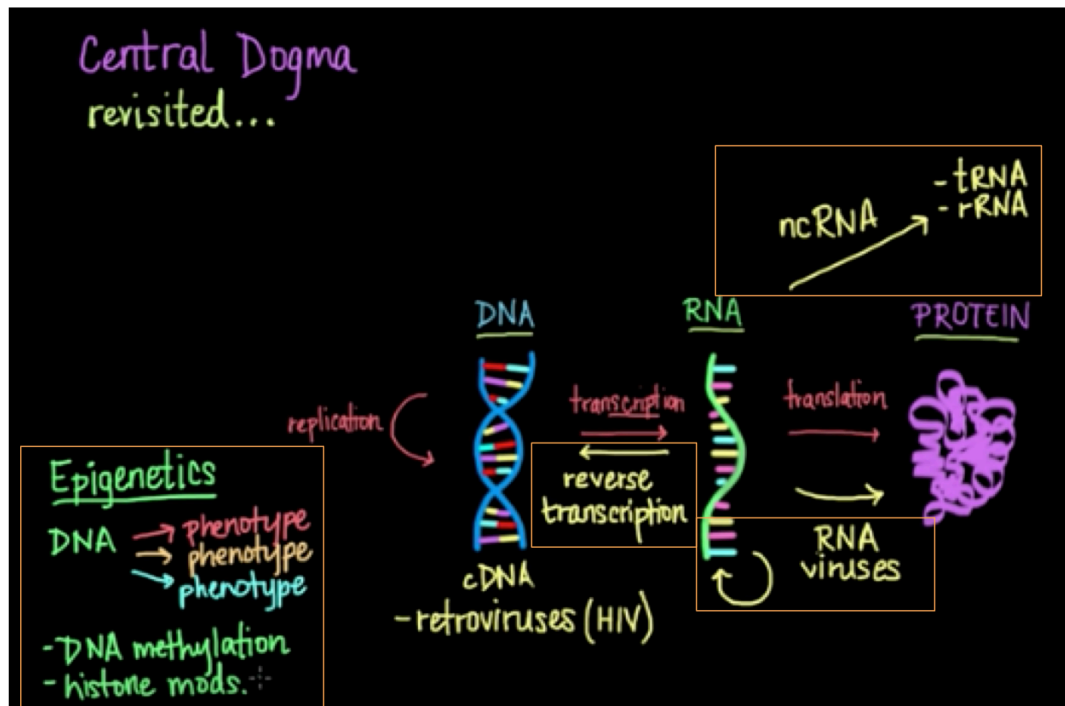 Central Dogma
revisited...
ncRNA
- tRNA
- rRNA
DNA
RNA
PROTEIN
replication
transcription
translation
reverse
transcription
RNA
viruses
cDNA
- retroviruses (HIV)
Epigenetics
DNA
phenotype
phenotype
phenotype
- DNA methylation
- histone mods.